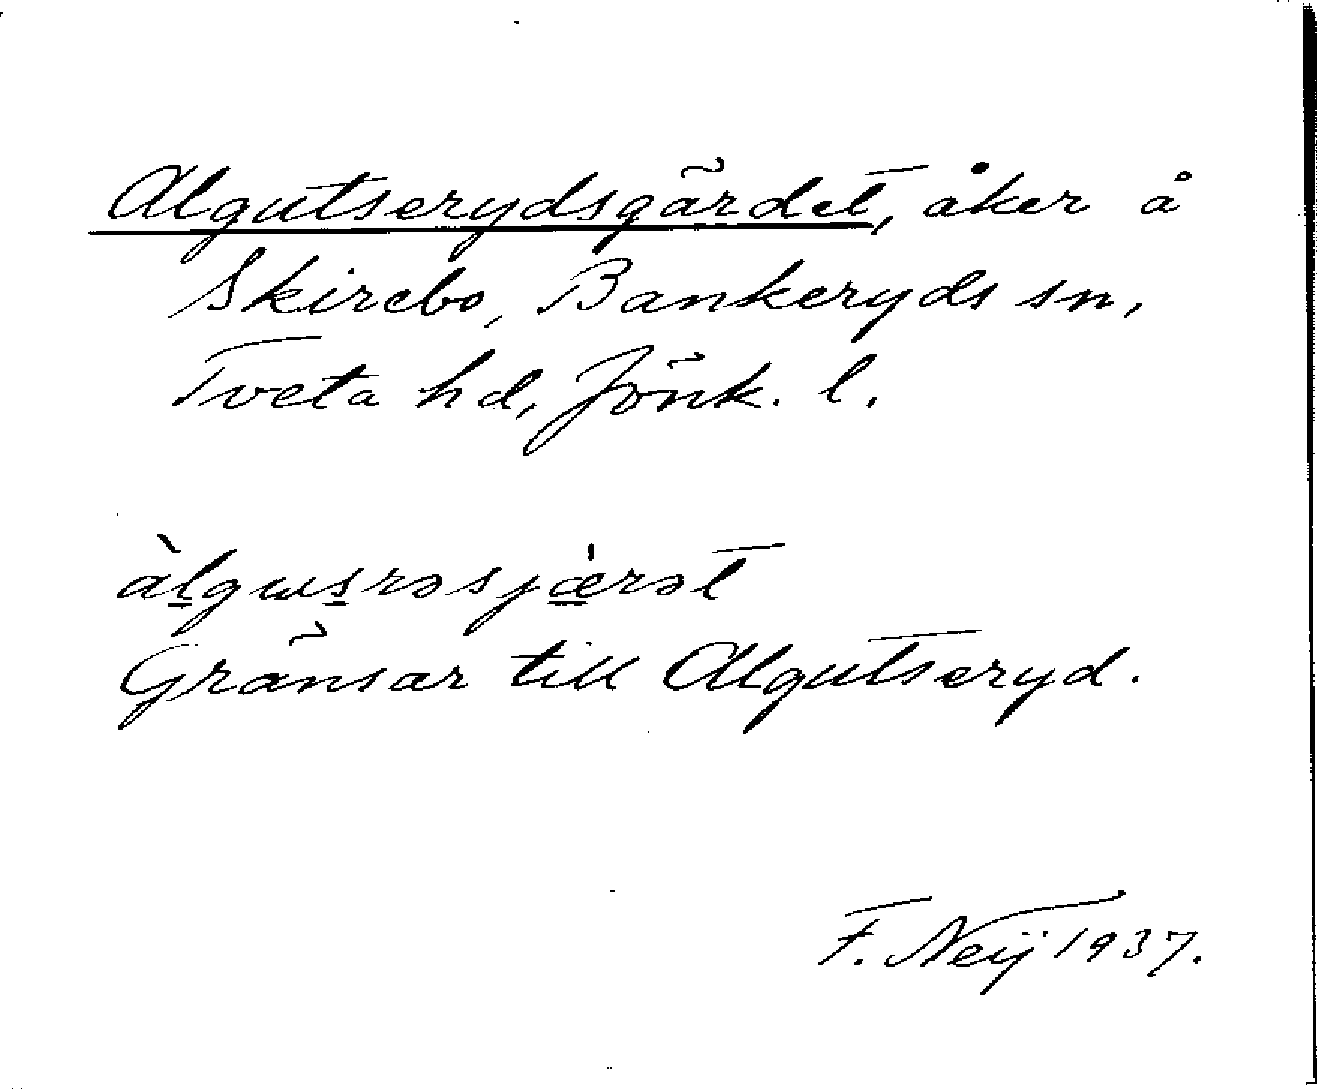 Algutserydsgärdet, åker å
Skirebo, Bankeryds sn,
Tveta hd, Jönk. l.
àlgɯsrəsjærət
Gränsar till Algutseryd.
F. Neij 1937.